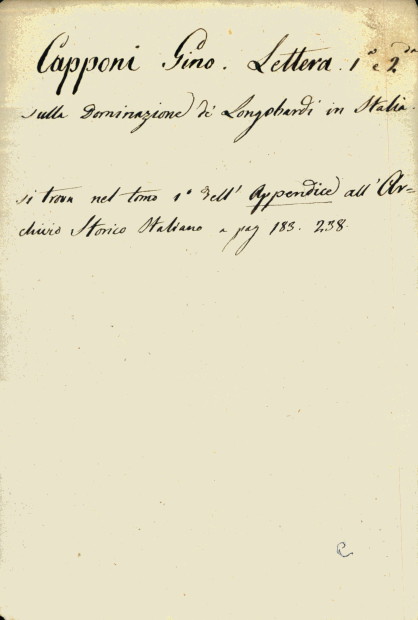 Capponi Gino. Lettera. 1ª e 2da
sulla Dominazione de' Longobardi in Italia.
si trova nel tomo 1º dell' Appendice all' Ar=
chivio Storico Italiano a pag 183. 238.